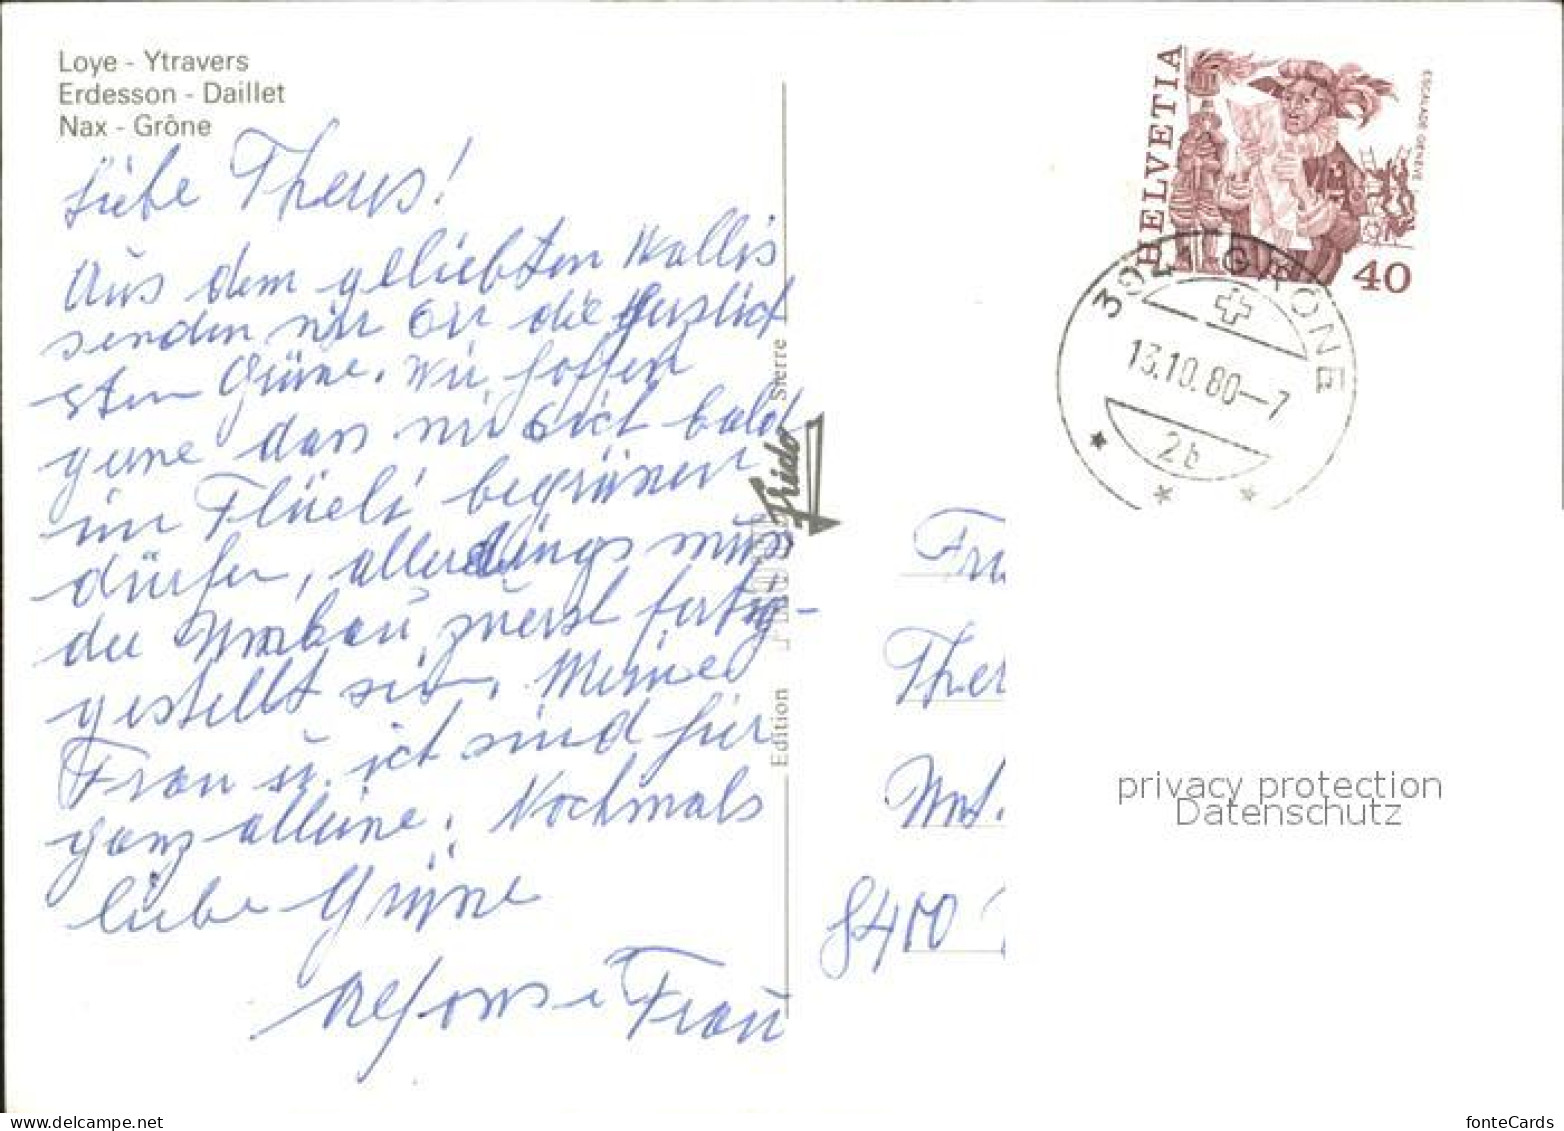 Loye - Ytravers
Erdesson - Daillet
Nax - Grône
Liebe Theres!
Aus dem geliebten Wallis
senden wir Dir die herzlich
sten Grüsse. Wir hoffen
gerne dass wir Dich bald
im Flüeli begrüssen
dürfen, allerdings muss
der Umbau zuerst fertig-
gestellt sein. Meine
Frau u. ich sind hier
ganz alleine. Nochmals
liebe Grüsse
Alfons i Frau
Edition Frido Sierre
HELVETIA
ESCALADE GENEVE
40
GRÔNE
13.10.80-7
2b
Fr
Ther
Unt.
8400
privacy protection
Datenschutz
www.delcampe.net
fonteCards